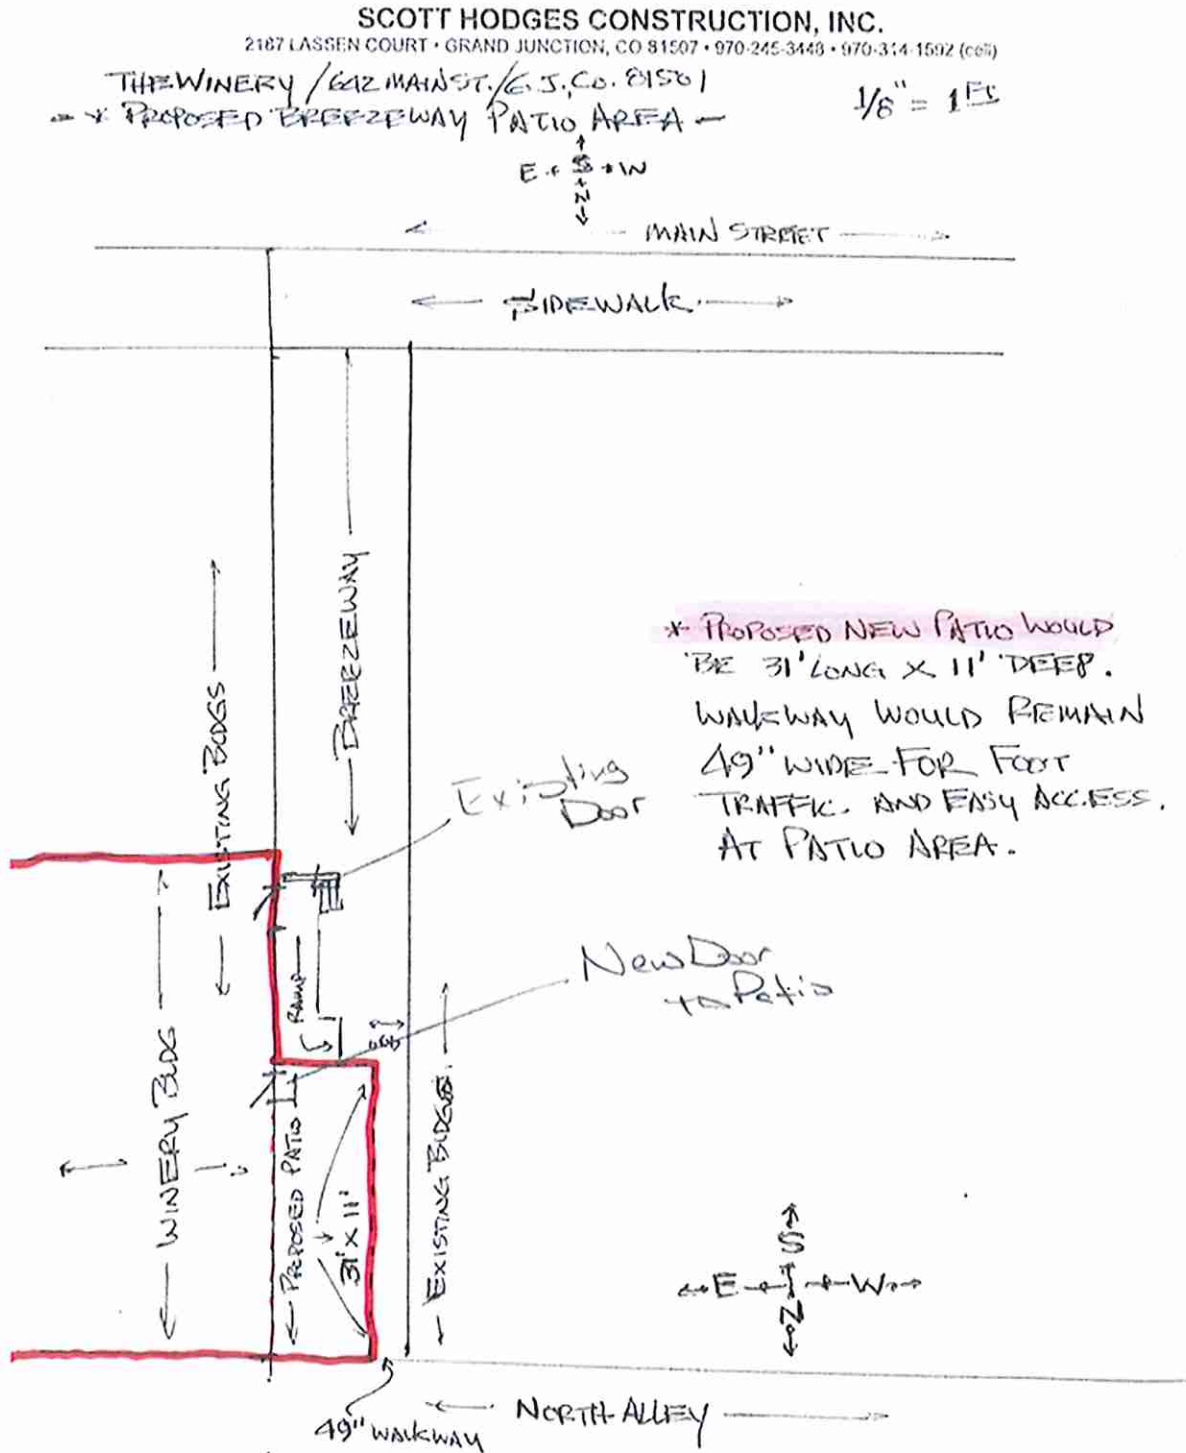 SCOTT HODGES CONSTRUCTION, INC.
2187 LASSEN COURT • GRAND JUNCTION, CO 81507 • 970-245-3448 • 970-314-1592 (cell)
THE WINERY / 642 MAIN ST. / G. J., CO. 81501
* PROPOSED BREEZEWAY PATIO AREA
1/8" = 1 Ft
E S W
N
MAIN STREET
SIDEWALK
BREEZEWAY
EXISTING BLDGS
* PROPOSED NEW PATIO WOULD
BE 31' LONG X 11' DEEP.
WALKWAY WOULD REMAIN
49" WIDE FOR FOOT
TRAFFIC. AND EASY ACCESS.
AT PATIO AREA.
Existing
Door
RAMP
New Door
to Patio
WINERY BLDG
PROPOSED PATIO
31' X 11'
EXISTING BLDGS.
S
E W
N
49" WALKWAY
NORTH ALLEY